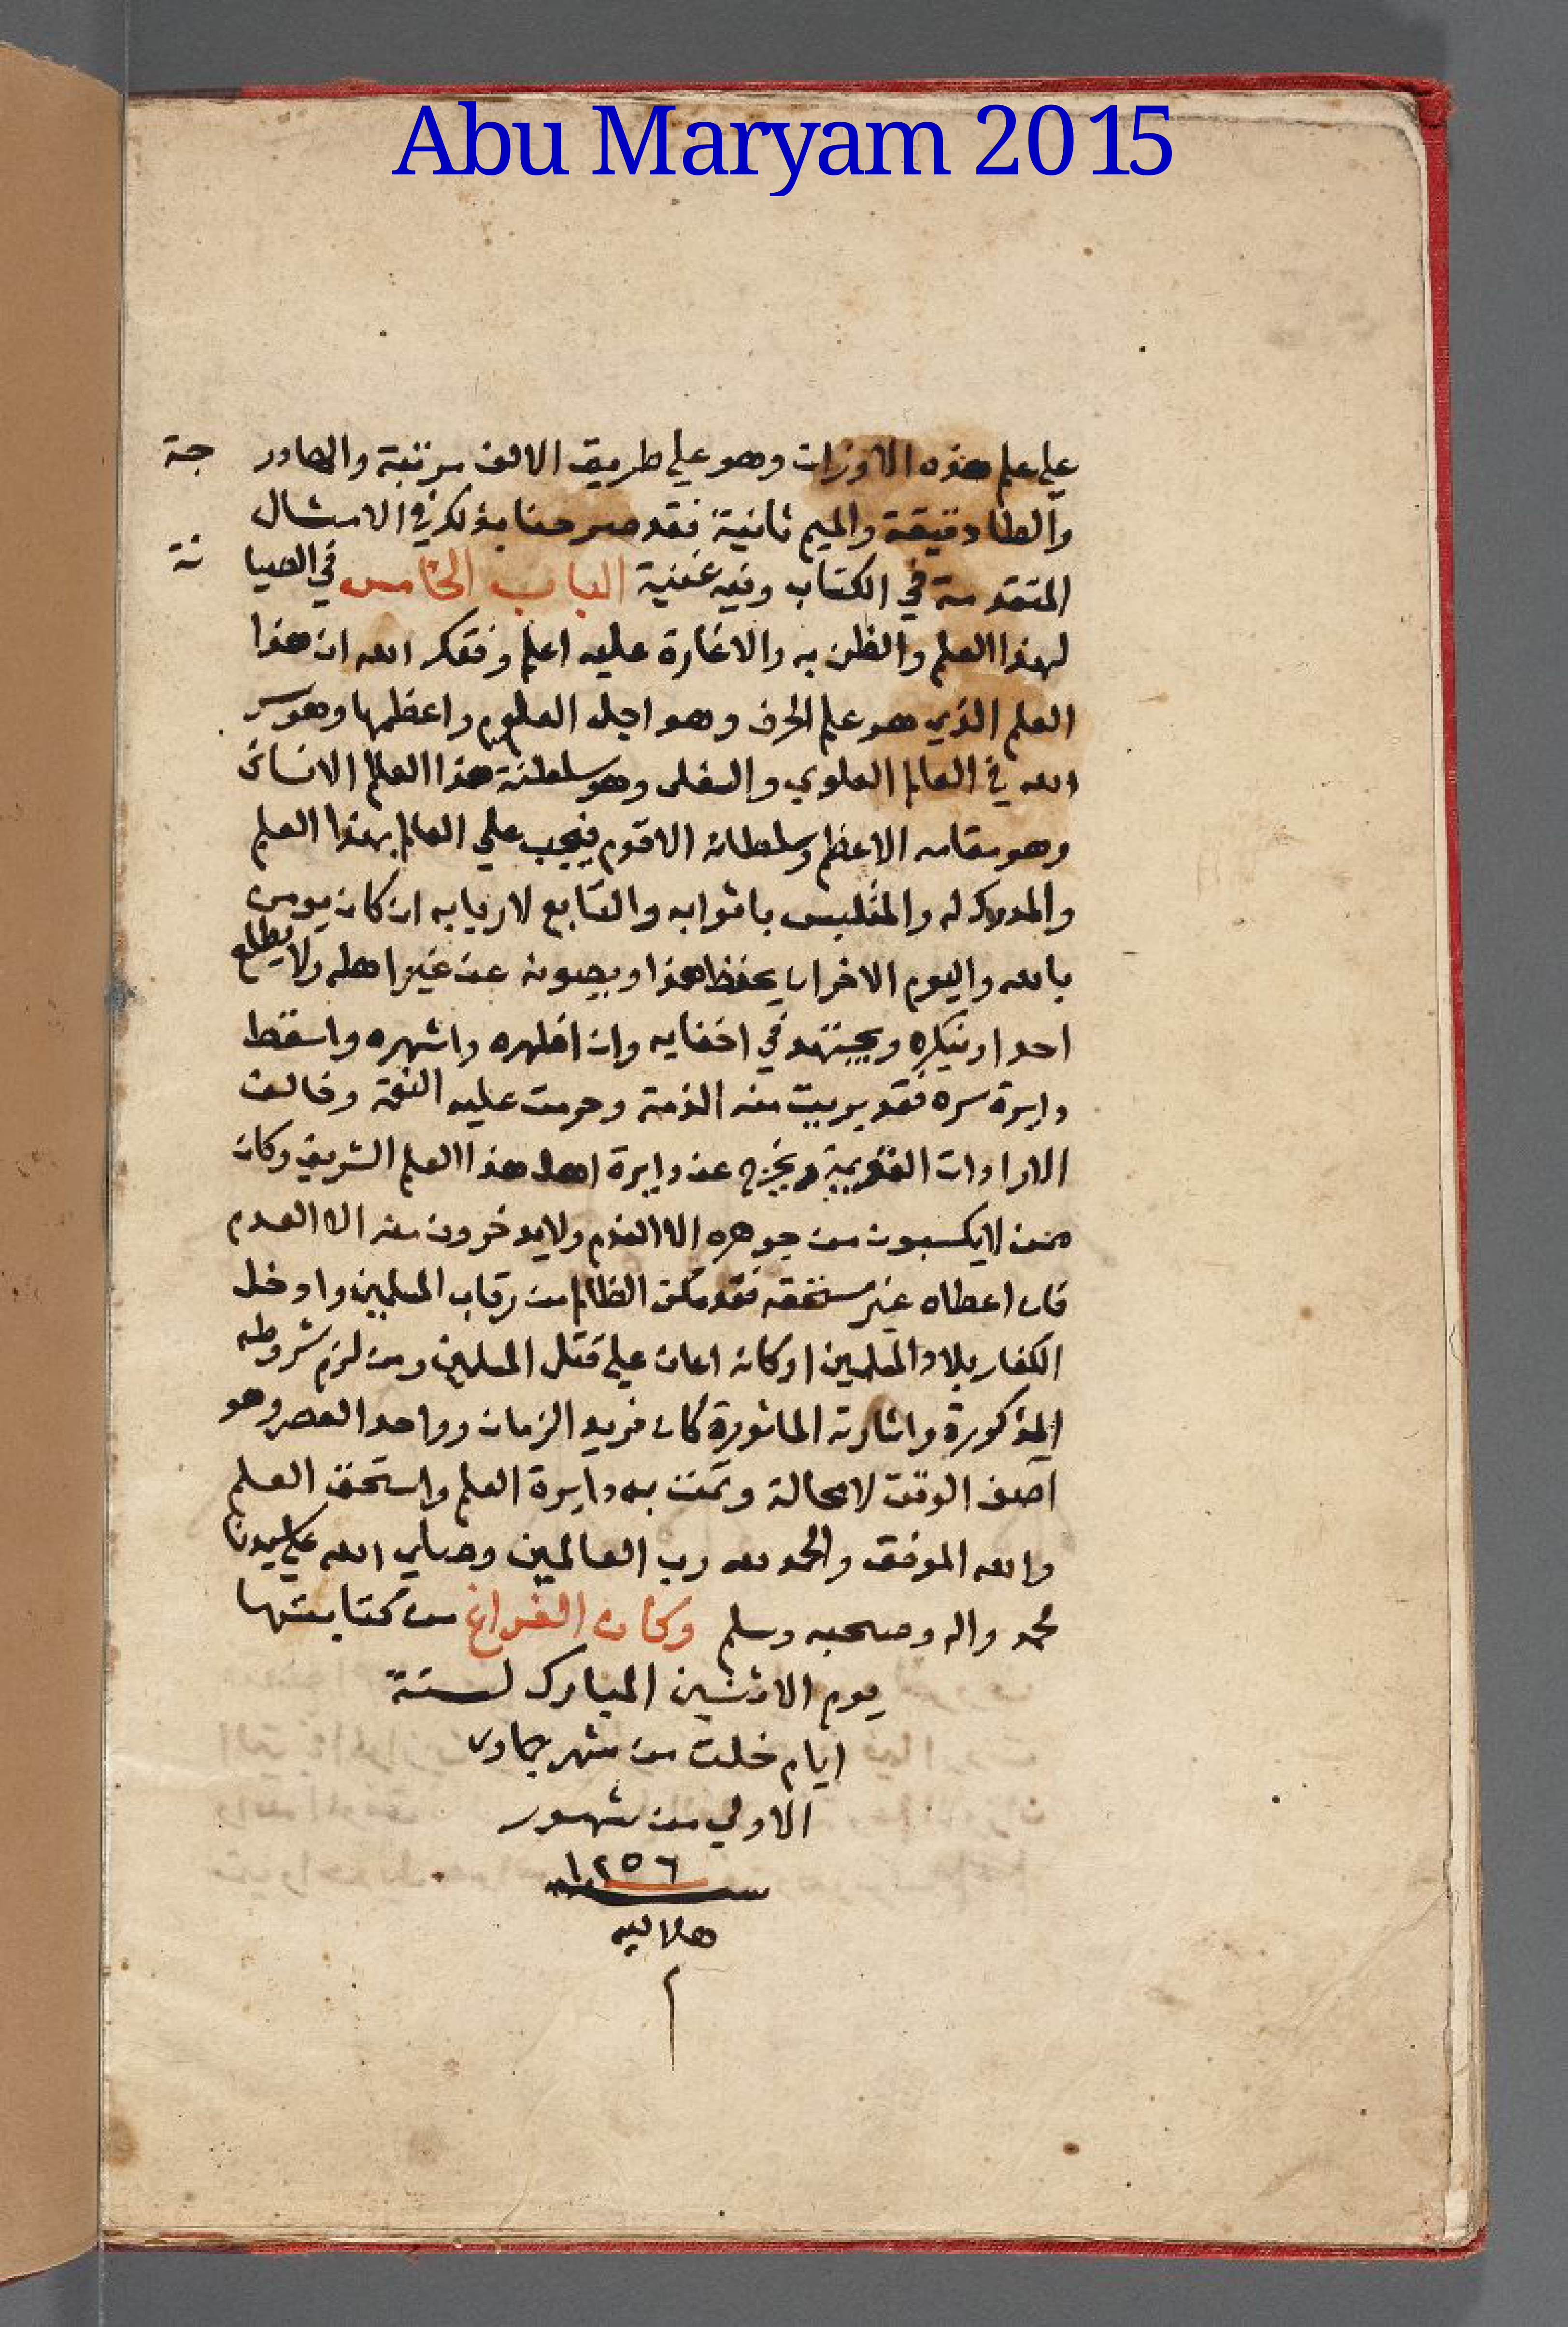 Abu Maryam 2015
علي علم هذه الاوزان وهو علي طريق الالف مرتبة والها در جة
والطا دقيقة والميم ثانية فقد صرحنا بذلك في الامثال
المتقدمة في الكتاب وفيه غنية الباب الخامس في الصيا نة
لهذا العلم والظن به والاغارة عليه اعلم وفقك الله ان هذا
العلم الذي هو علم الحرف وهو اجل العلوم واعظمها وهو سر
الله في العالم العلوي والسفلي وهو سلطنة هذا العالم الانساني
وهو مقامه الاعظم وسلطانه الاقوم فيجب علي العالم بهذا العلم
والمدرك له والمتلبس باثوابه والتابع لاربابه ان كان يومن
بالله واليوم الاخر ان يحفظ هذا ويصونه عن غير اهله ولا يطلع
احدا وينكره ويجتهد في اخفايه وان اظهره واشهره واسقط
دايرة سره فقد بريت منه الذمة وحرمت عليه وخالف
الارادات القديمة ويخرج عن دايرة اهل هذا العلم الشريف وكان
ممن لا يكسبون من جوهره الا ولا يدخرون منه الا العدم
فان اعطاه غير مستحقه فقد مكن الظالم من رقاب المسلمين وادخل
الكفار بلاد المسلمين او كان اعان علي قتل المسلمين ومن لزم شروطه
المذكورة واشارته الماثورة كان فريد الزمان وواحد العصر وهو
اصف الوقت لا محالة وتمت به دايرة العلم واستحق العلم
والله الموفق والحمد لله رب العالمين وصلي الله علي سيدنا
محمد واله وصحبه وسلم وكان الفراغ من كتابتها
يوم الاثنين المبارك لستة
ايام خلت من شهر جمادى
الاولي من شهور
١٢٥٦
سنة
هلاليه
م